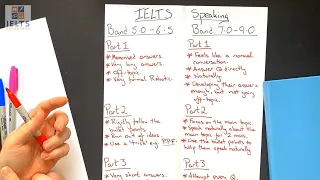 IELTS
IELTS
Band 5.0 - 6.5
Part 1
* Memorised answers.
* Very long answers.
* Off-topic.
* Very formal. Robotic.
Part 2
* Rigidly follow the
bullet points.
* Run out of ideas.
* Use a 'trick' e.g. P.P.F.
Part 3
* Very short answers.
Speaking
Band 7.0 - 9.0
Part 1
* Feels like a normal
conversation.
* Answer Q directly
* Naturally.
* Developing their answers
enough, but not going
off-topic.
Part 2
* Focus on the main topic.
* Speak naturally about the
main topic for 1/2 mins.
* Use the bullet points to
help them speak naturally
Part 3
* Attempt every Q.